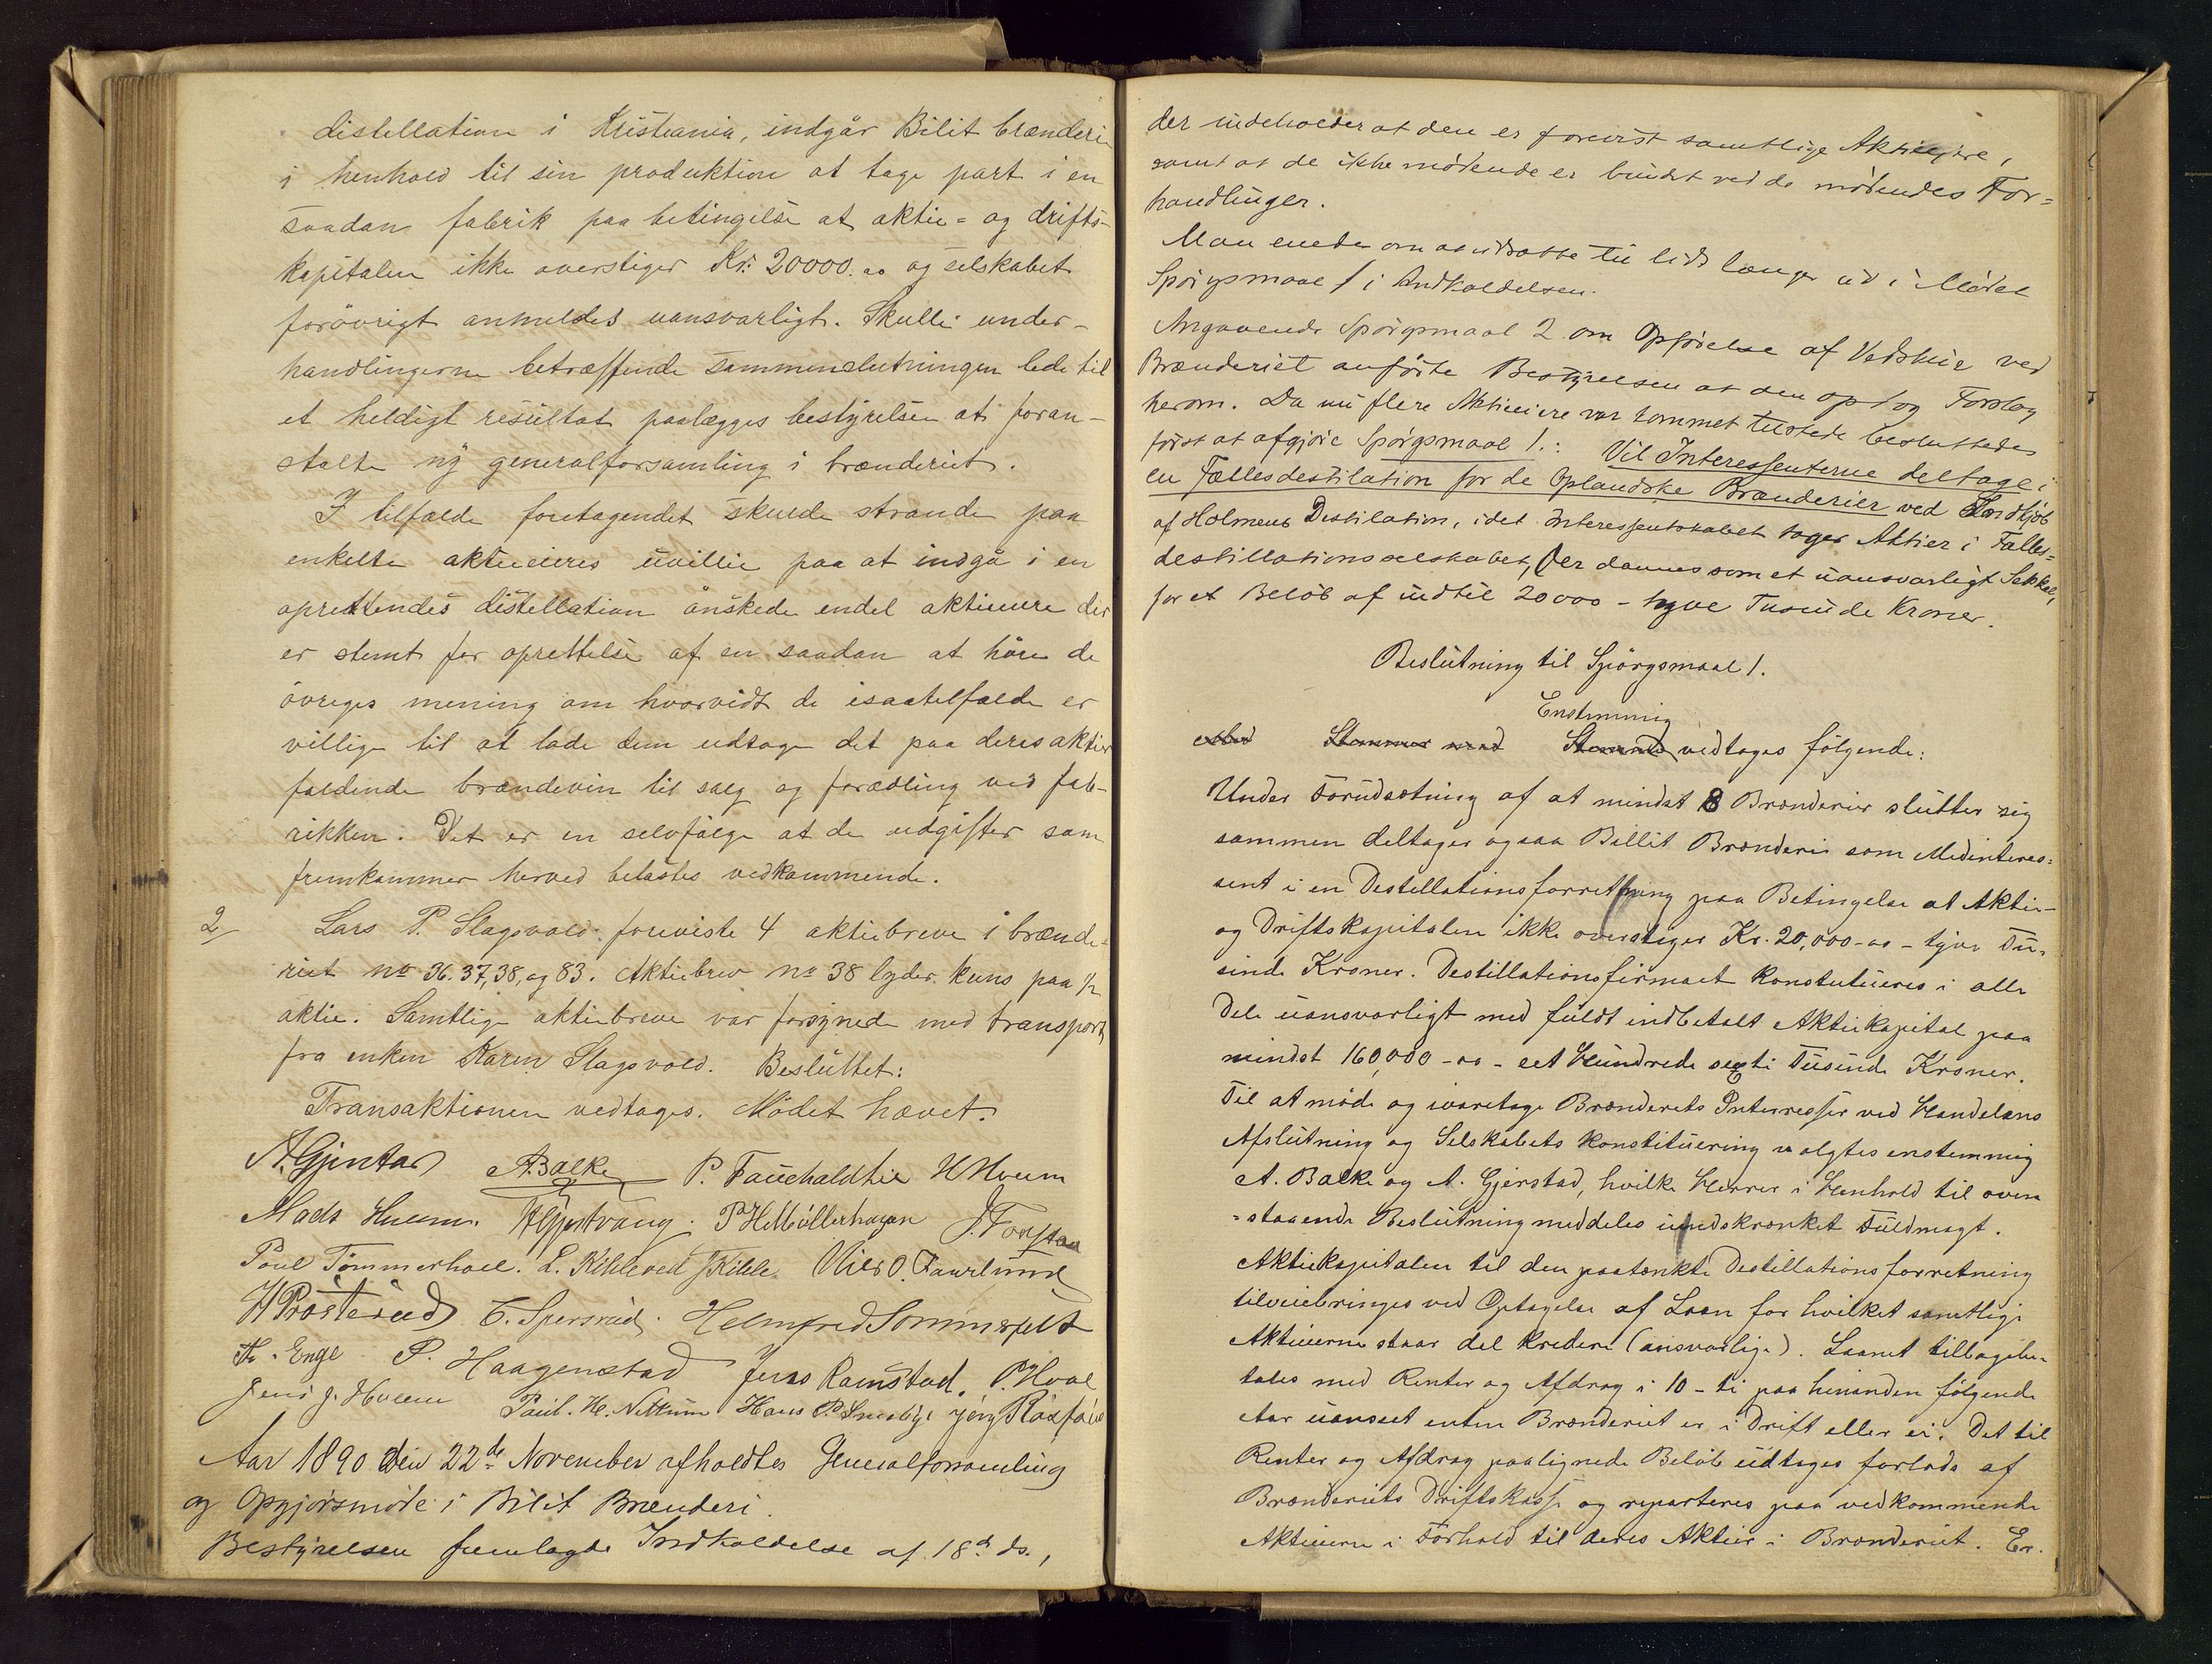 distellation i Kristiania, indgår Bilit brænderi
i henhold til sin produktion at tage part i en
saadan fabrik paa betingelse at aktie- og drifts-
kapitalen ikke overstiger Kr. 20000.00 og selskabet
forövrigt anmeldes uansvarligt. Skulle under-
handlingerne betræffende sammenslutningen lede til
et heldigt resultat paalægges bestyrelsen at foran-
stalte ny generalforsamling i brænderiet.
I tilfælde foretagendet skulde strande paa
enkelte aktieeieres uvillie paa at indgå i en
oprettendes distellation önskede endel aktieeiere der
er stemt for oprettelse af en saadan at höre de
övriges mening om hvorvidt de isaatilfælde er
villige til at lade dem udtage det paa deres aktier
faldende brændevin til salg og forædling ved fab-
rikken. Det er en selvfölge at de udgifter som
fremkommer herved belastes vedkommende.
2/ Lars P. Slagsvold foreviste 4 aktiebreve i brænde-
riet no 36. 37, 38, og 83. Aktiebrev no 38 lyder kuns paa 1/2
aktie. Samtlige aktiebreve var forsynede med transport
fra enken Karen Slagsvold. Besluttet:
Transaktionen vedtages. Mödet hævet.
A. Gjestad A. Balke P. Fauchaldlie H Hveem
Mads Hveem. P H Möllerhagen
Poul Tömmerhoel. L. Kihle ved J Kihle. Nils O. Faurlund
H Prösterud C. Spersrud. Helmfred Sommerfelt
Th. Enge P. Haagenstad Jens Ramstad. P. Hoel
Jens J. Hveem Paul. H. Nettum Hans P.
Aar 1890 den 22de November afholdtes Generalforsamling
og Opgjörsmöte i Bilit Brænderi.
Bestyrelsen fremlagde Indkaldelse af 18d ds.,
der indeholder at den er forevist samtlige Aktieeiere,
samt at de ikke mödende er bundet ved de mödendes For-
handlinger.
Man enedes om at udsætte til lidt længer ud i Mödet
Spörgsmaal 1 i Indkaldelsen.
Angaaende Spörgsmaal 2 om Opförelse af Vedskie ved
Brænderiet anförte Bestyrelsen at den optog Forslag
herom. Da nu flere Aktieeiere var kommet tilstede besluttedes
först at afgjöre Spörgsmaal 1.: Vil Interessenterne deltage i
en Fællesdestilation for de Oplandske Brænderier ved Indkjöb
af Holmens Destilation, idet Interessentskabet tager Aktier i Fælles-
destillationsselskabet, der dannes som et uansvarligt Selskab,
for et Belöb af indtil 20000 - tyve Tusinde Kroner.
Beslutning til Spörgsmaal 1.
Enstemmig
Stemmer mod vedtages fölgende:
Under Forudsætning af at mindst 8 Brænderier slutter sig
sammen deltager ogsaa Billit Brænderi som Medinteres-
sent i en Destillationsforretning paa Betingelse at Aktie-
og Driftskapitalen ikke overstiger Kr. 20,000-00 - tyve Tu-
sinde Kroner. Destillationsfirmaet konstitueres i alle
Dele uansvarligt med fuldt indbetalt Aktiekapital paa
mindst 160,000-00 - eet Hundrede sexti Tusinde Kroner.
Til at möde og ivaretage Brænderiets Interesser ved Handelens
Afslutning og Selskabets Konstituering valgtes enstemmig
A. Balke og A. Gjerstad, hvilke Herrer i Henhold til oven
-staaende Beslutning meddeles uindskrænket Fuldmagt.
Aktiekapitalen til den paatænkte Destillationsforretning
tilveiebringes ved Optagelse af Laan for hvilket samtlige
Aktieierne staar del kredere (ansvarlige). Laanet tilbagebe-
tales med Renter og Afdrag i 10 - ti paa hinanden fölgende
Aar uanset enten Brænderiet er i Drift eller ei. Det til
Renter og Afdrag paalignede Belöb udtages forlods af
Brænderiets Driftskasse og reparteres paa vedkommende
Aktieierne i Forhold til deres Aktier i Brænderiet. Er